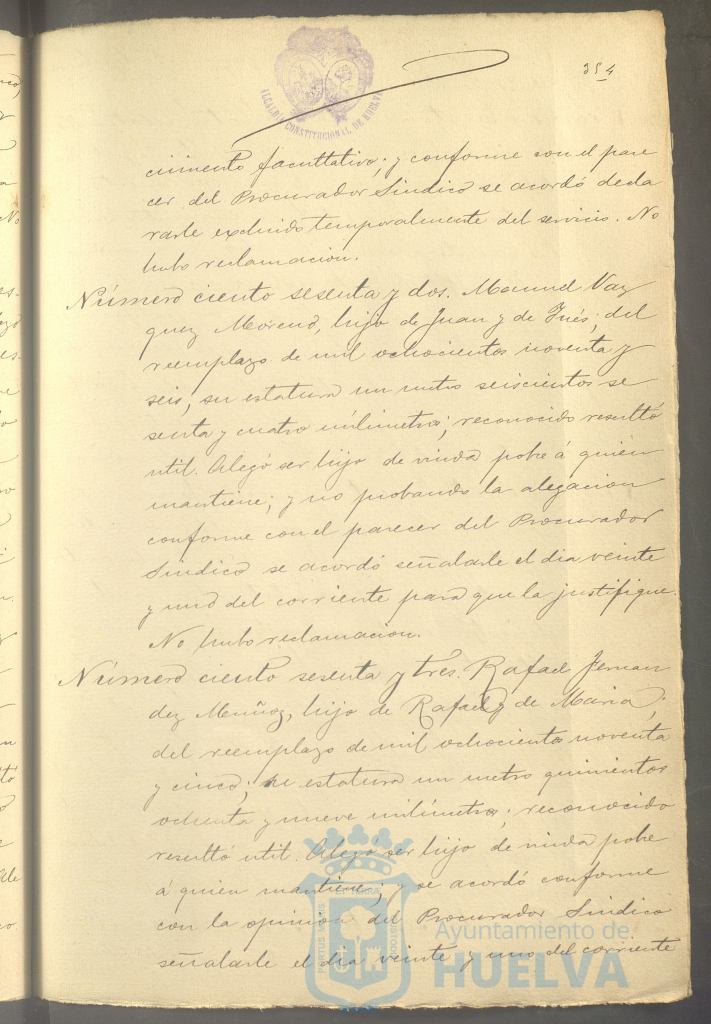 354
ALCALDIA CONSTITUCIONAL DE HUELVA
cimiento facultativo; y conforme con el pare
cer del Procurador Sindico se acordó decla
rarle excluido temporalmente del servicio. No
hubo reclamacion.
Número ciento sesenta y dos. Manuel Vaz
quez Moreno, hijo de Juan y de Inés; del
reemplazo de mil ochocientos noventa y
seis, su estatura un metro seiscientos se
senta y cuatro milimetros; reconocido resultó
util. Alegó ser hijo de viuda pobre á quién
mantiene; y no probando la alegacion
conforme con el parecer del Procurador
Sindico se acordó señalarle el dia veinte
y uno del corriente para que la justifique.
No hubo reclamacion.
Número ciento sesenta y tres. Rafael Fernan
dez Muñoz, hijo de Rafael y de Maria;
del reemplazo de mil ochocientos noventa
y cinco; su estatura un metro quinientos
ochenta y nueve milimetros; reconocido
resultó util. Alegó ser hijo de viuda pobre
á quien mantiene; y se acordó conforme
con la opinion del Procurador Sindico
señalarle el dia veinte y uno del corriente
Ayuntamiento de
HUELVA